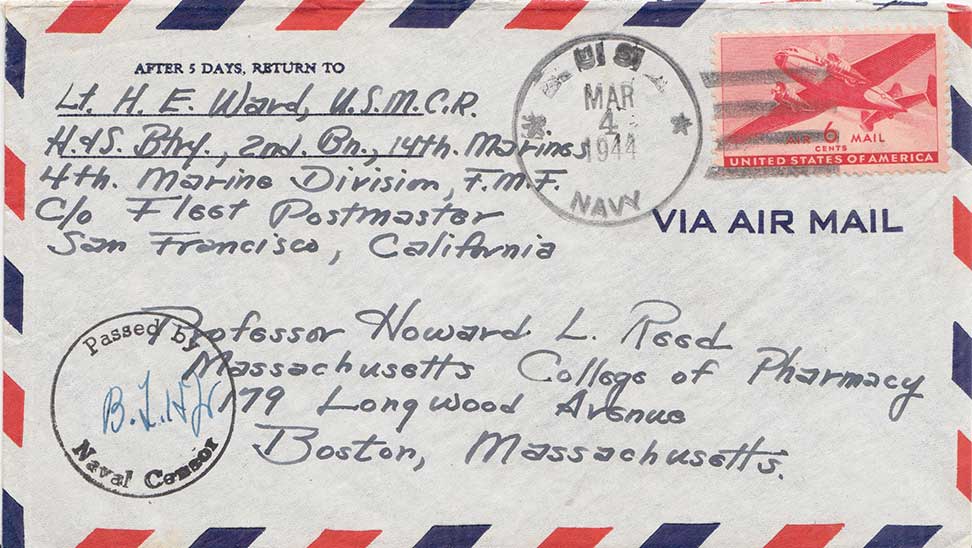 AFTER 5 DAYS, RETURN TO
Lt. H. E. Ward, U.S.M.C.R.
H.&S. Btry., 2nd. Bn., 14th. Marines
4th. Marine Division, F.M.F.
c/o Fleet Postmaster
San Francisco, California
U.S.
MAR
4
1944
NAVY
AIR 6 MAIL
CENTS
UNITED STATES OF AMERICA
VIA AIR MAIL
Professor Howard L. Reed
Massachusetts College of Pharmacy
179 Longwood Avenue
Boston, Massachusetts.
Passed by
Naval Censor